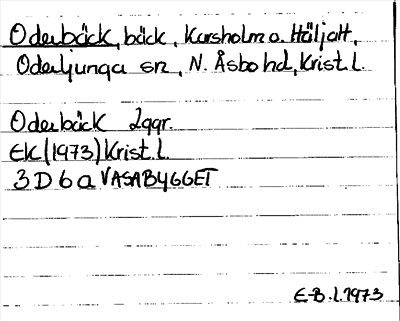 Oderbäck, bäck, Kursholm o. Häljalt,
Oderljunga sn, N. Åsbo hd, Krist. l.
Oderbäck 2ggr.
EK (1973) Krist. l.
3 D 6 a VASABYGGET
E-B. l. 1973